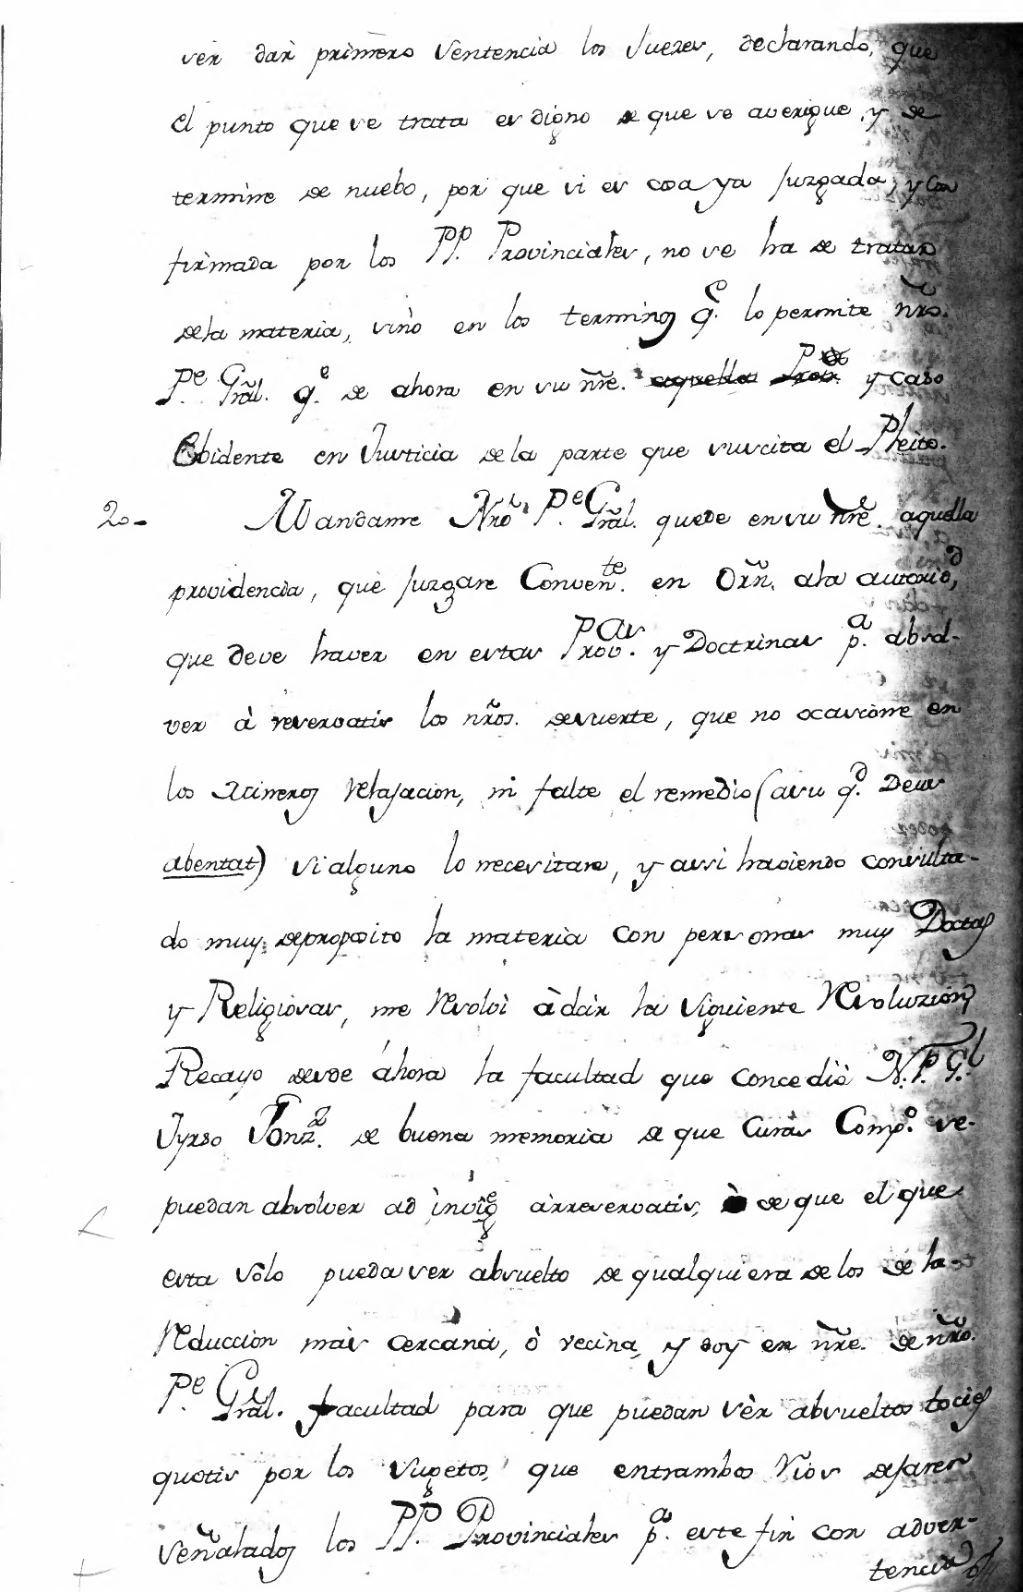 ser dar primero Sentencia los Jueses, declarando, que
el punto que se trata es digno de que se averigue, y se
termine de nuebo, por que si es cosa ya Juzgada, y con
firmada por los PP. Provinciales, no se ha de tratar
dela materia, sino en los terminos q.e lo permite nr̃o.
P.e Grãl. q.e de ahora en su nr̃e. y caso
Ebidente en Justicia dela parte que suscita el Pleito.
20- Mandame Nr̃o P.e Grãl. quede en su nr̃e. aquella
providencia, que juzgare Conven.te en Orñ. ala autorid.d,
que deve haver en estas Prov.as y Doctrinas p.a absol-
ver à reservatis los nr̃os. desuerte, que no ocasione en
los animos relajacion, ni falte el remedio (asu q.d Deus
abentat) si alguno lo necesitare, y assi haciendo consulta-
do muy deproposito la materia con personas muy Doctas
y Religiosas, me resolvi à dar la siguiente Resoluzion
Recayo desde áhora la facultad que concedió N.P.G.l
Tyrso Gonz.z de buena memoria de que Curas Comp.o se-
puedan absolver ad invic̃e àrreservatis, de que el que
esta sólo pueda ser absuelto de qualquiera delos de la-
Reduccion mas cercana, ò vecina, y doy en nr̃e. de nr̃o.
P.e Grãl. facultad para que puedan sèr absueltos tocies
quotis por los sugetos que entrambos rios dejaren
señalados los PP. Provinciales p.a este fin con adver-
tencia